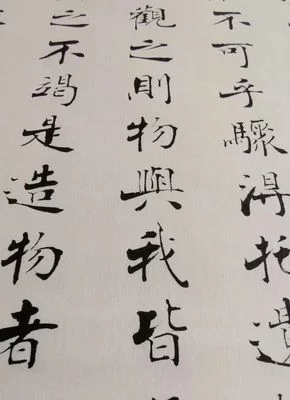 不可乎驟得托遺
觀之則物與我皆
之不竭是造物者